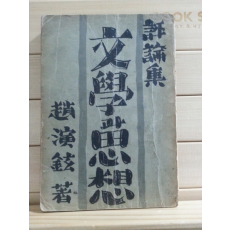 評論集
文學과思想
趙演鉉 著